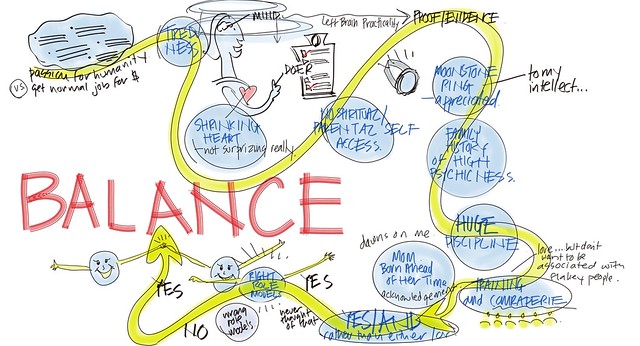 passion for humanity
vs
get normal job for $
TIREDNESS.
MIND
DOER
Left Brain Practicality
PROOF/EVIDENCE
MOONSTONE
RING
—appreciated.
to my
intellect...
SHRINKING
HEART
—not surprizing really.
NO SPIRITUAL/
PARENTAL SELF
ACCESS.
FAMILY
HISTORY
OF HIGH
PSYCHICNESS.
BALANCE
HUGE
DISCIPLINE
dawns on me
MOM
Born Ahead
of Her Time
acknowledgement
love...but don't
want to be
associated with
flakey people.
TRAINING
and COMRADERIE
YES
NO
RIGHT
ROLE
MODELS
YES
wrong
role
models
never
thought
of that
YES/AND
rather than either/or